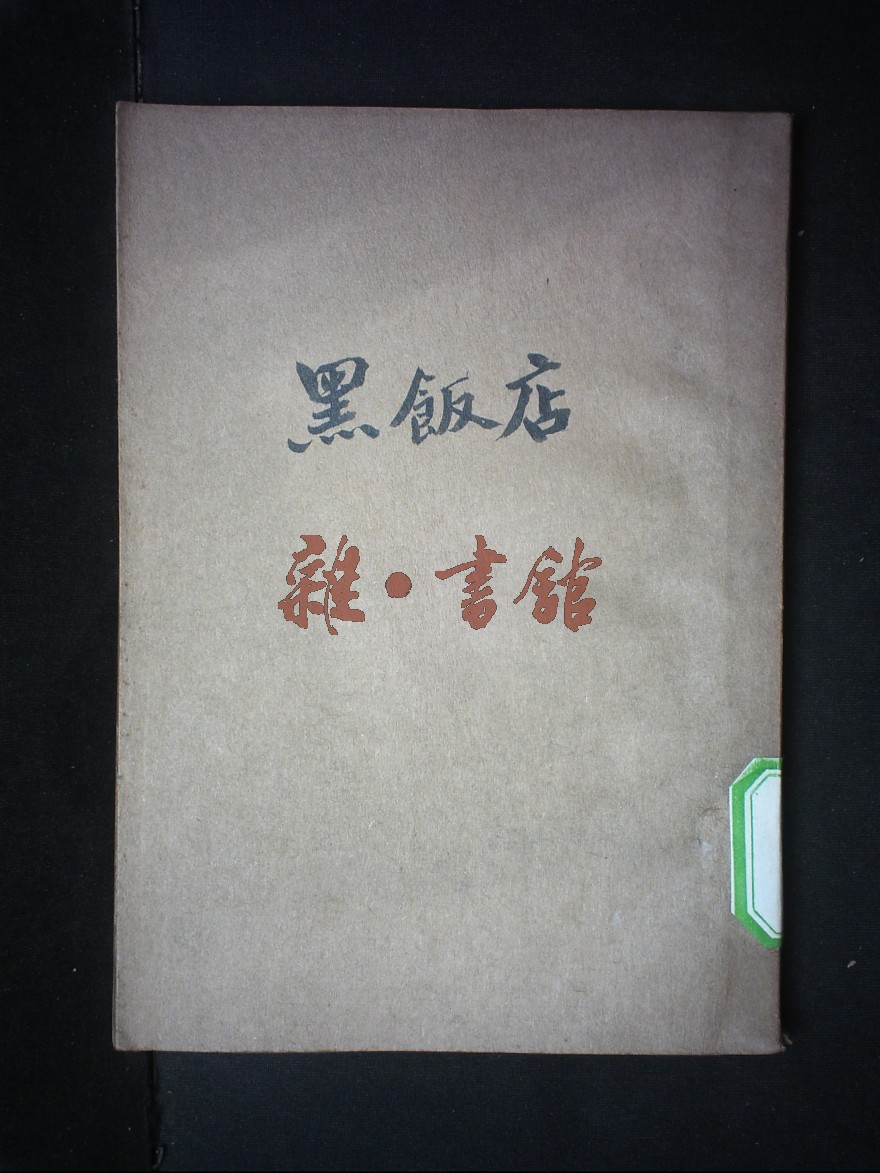 黑飯店
雜●書舘